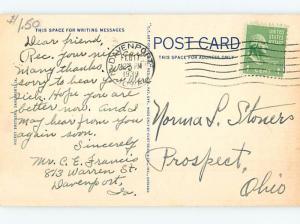 $1.50
THIS SPACE FOR WRITING MESSAGES
POST CARD
THIS SPACE FOR ADDRESS ONLY
DAVENPORT
1939
Dear friend,
Rec. your nice card
many thanks.
sorry to hear your
sick. Hope you are
better now. And I
may hear from you
again soon.
Sincerely
Mr. C. E. Francis
873 Warren St.
Davenport,
Ia.
Norma L. Stoners
Prospect,
Ohio